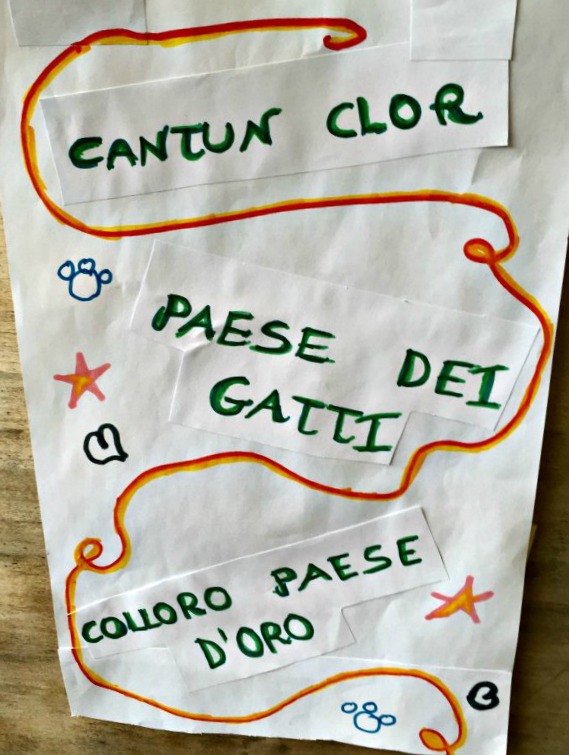 CANTUN CLOR
PAESE DEI
GATTI
COLLORO PAESE
D'ORO